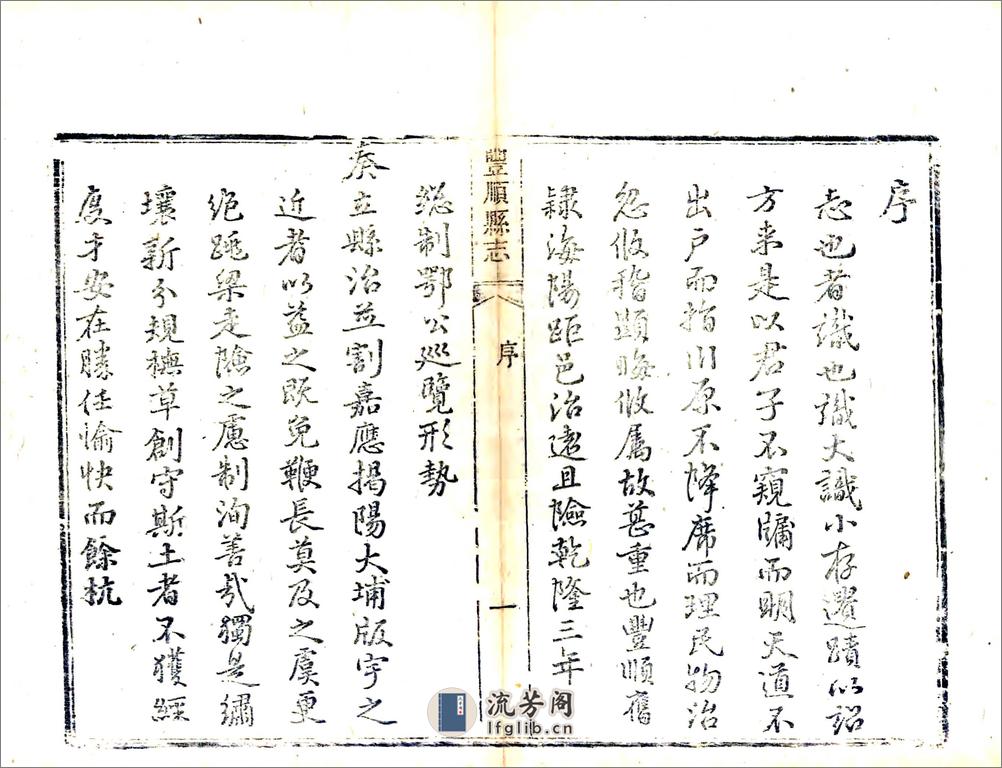 序
志也者識也識大識小存遺蹟以詔
方來是以君子不窺牖而明天道不
出戶而指川原不降席而理民物治
忽攸稽顯晦攸屬故甚重也豐順舊
隸海陽距邑治遠且險乾隆三年
豐順縣志
序
一
總制鄂公巡覽形勢
奏立縣治並割嘉應揭陽大埔版宇之
近者以益之既免鞭長莫及之虞更
絕跳梁走險之慮制洵善哉獨是繡
壤新分規橅草創守斯土者不獲經
度才安在勝任愉快而餘杭
流芳阁
lfglib.cn